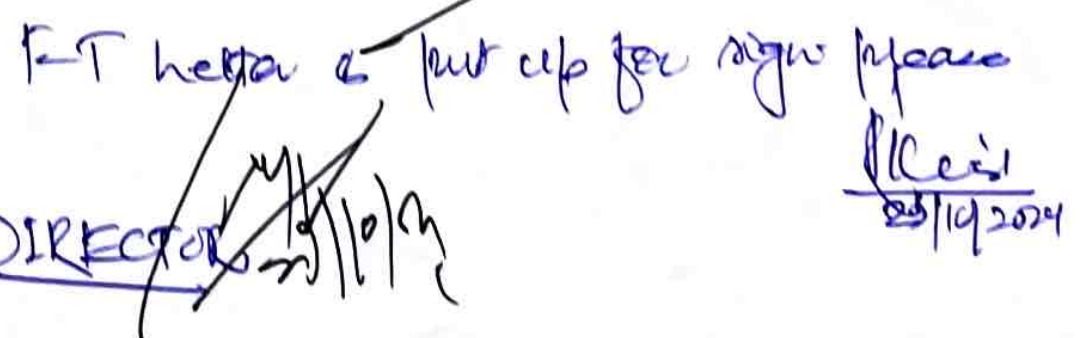 F-T letter is put up for sign please
25/10/2024
DIRECTOR